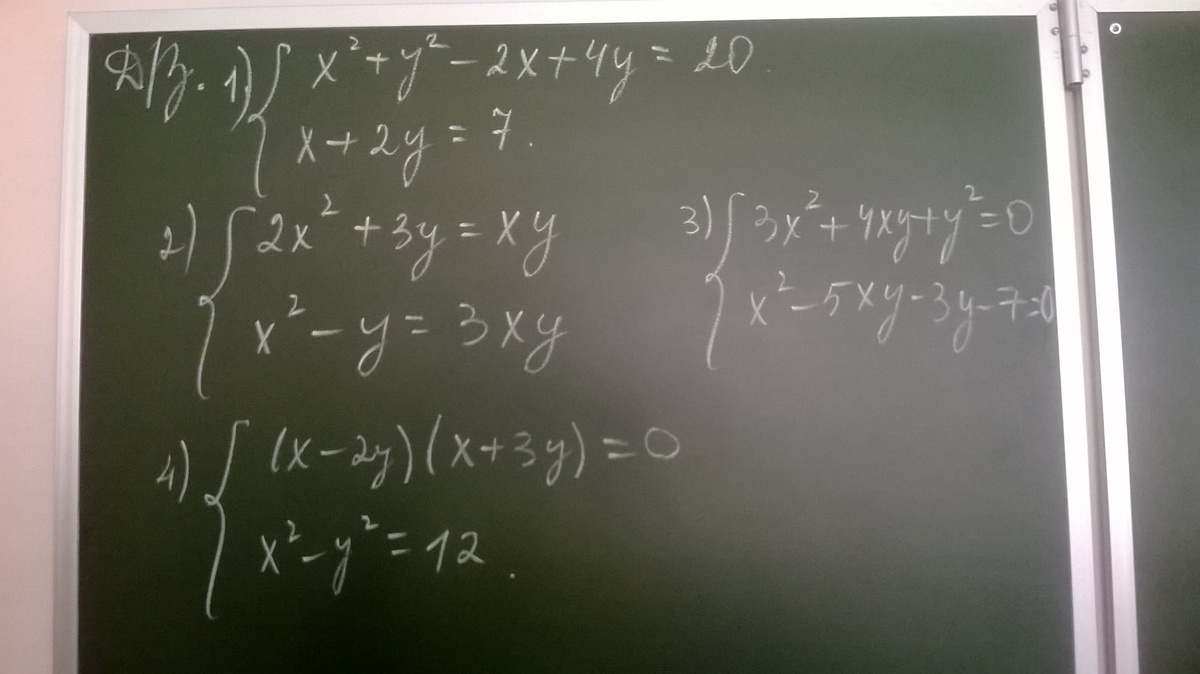 Д/з. 1) { x² + y² - 2x + 4y = 20.
x + 2y = 7.
2) { 2x² + 3y = xy
x² - y = 3xy
3) { 3x² + 4xy + y² = 0
x² - 5xy - 3y - 7 = 0
4) { (x - 2y)(x + 3y) = 0
x² - y² = 12.